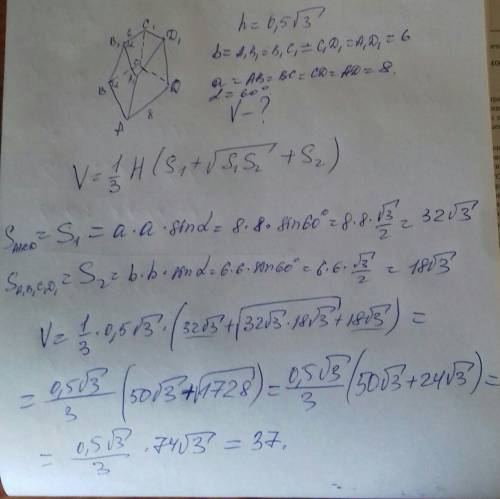 B₁ C₁ D₁
B D
A 8
h = 0,5√3
b = A₁B₁ = B₁C₁ = C₁D₁ = A₁D₁ = 6
a = AB = BC = CD = AD = 8.
α = 60°
V - ?
V = 1/3 H (S₁ + √S₁S₂ + S₂)
S = S₁ = a · a · sinα = 8 · 8 · sin60° = 8 · 8 · √3/2 = 32√3
S A₁B₁C₁D₁ = S₂ = b · b · sinα = 6 · 6 · sin60° = 6 · 6 · √3/2 = 18√3
V = 1/3 · 0,5√3 · (32√3 + √32√3 · 18√3 + 18√3) =
= 0,5√3/3 (50√3 + √1728) = 0,5√3/3 (50√3 + 24√3) =
= 0,5√3/3 · 74√3 = 37.